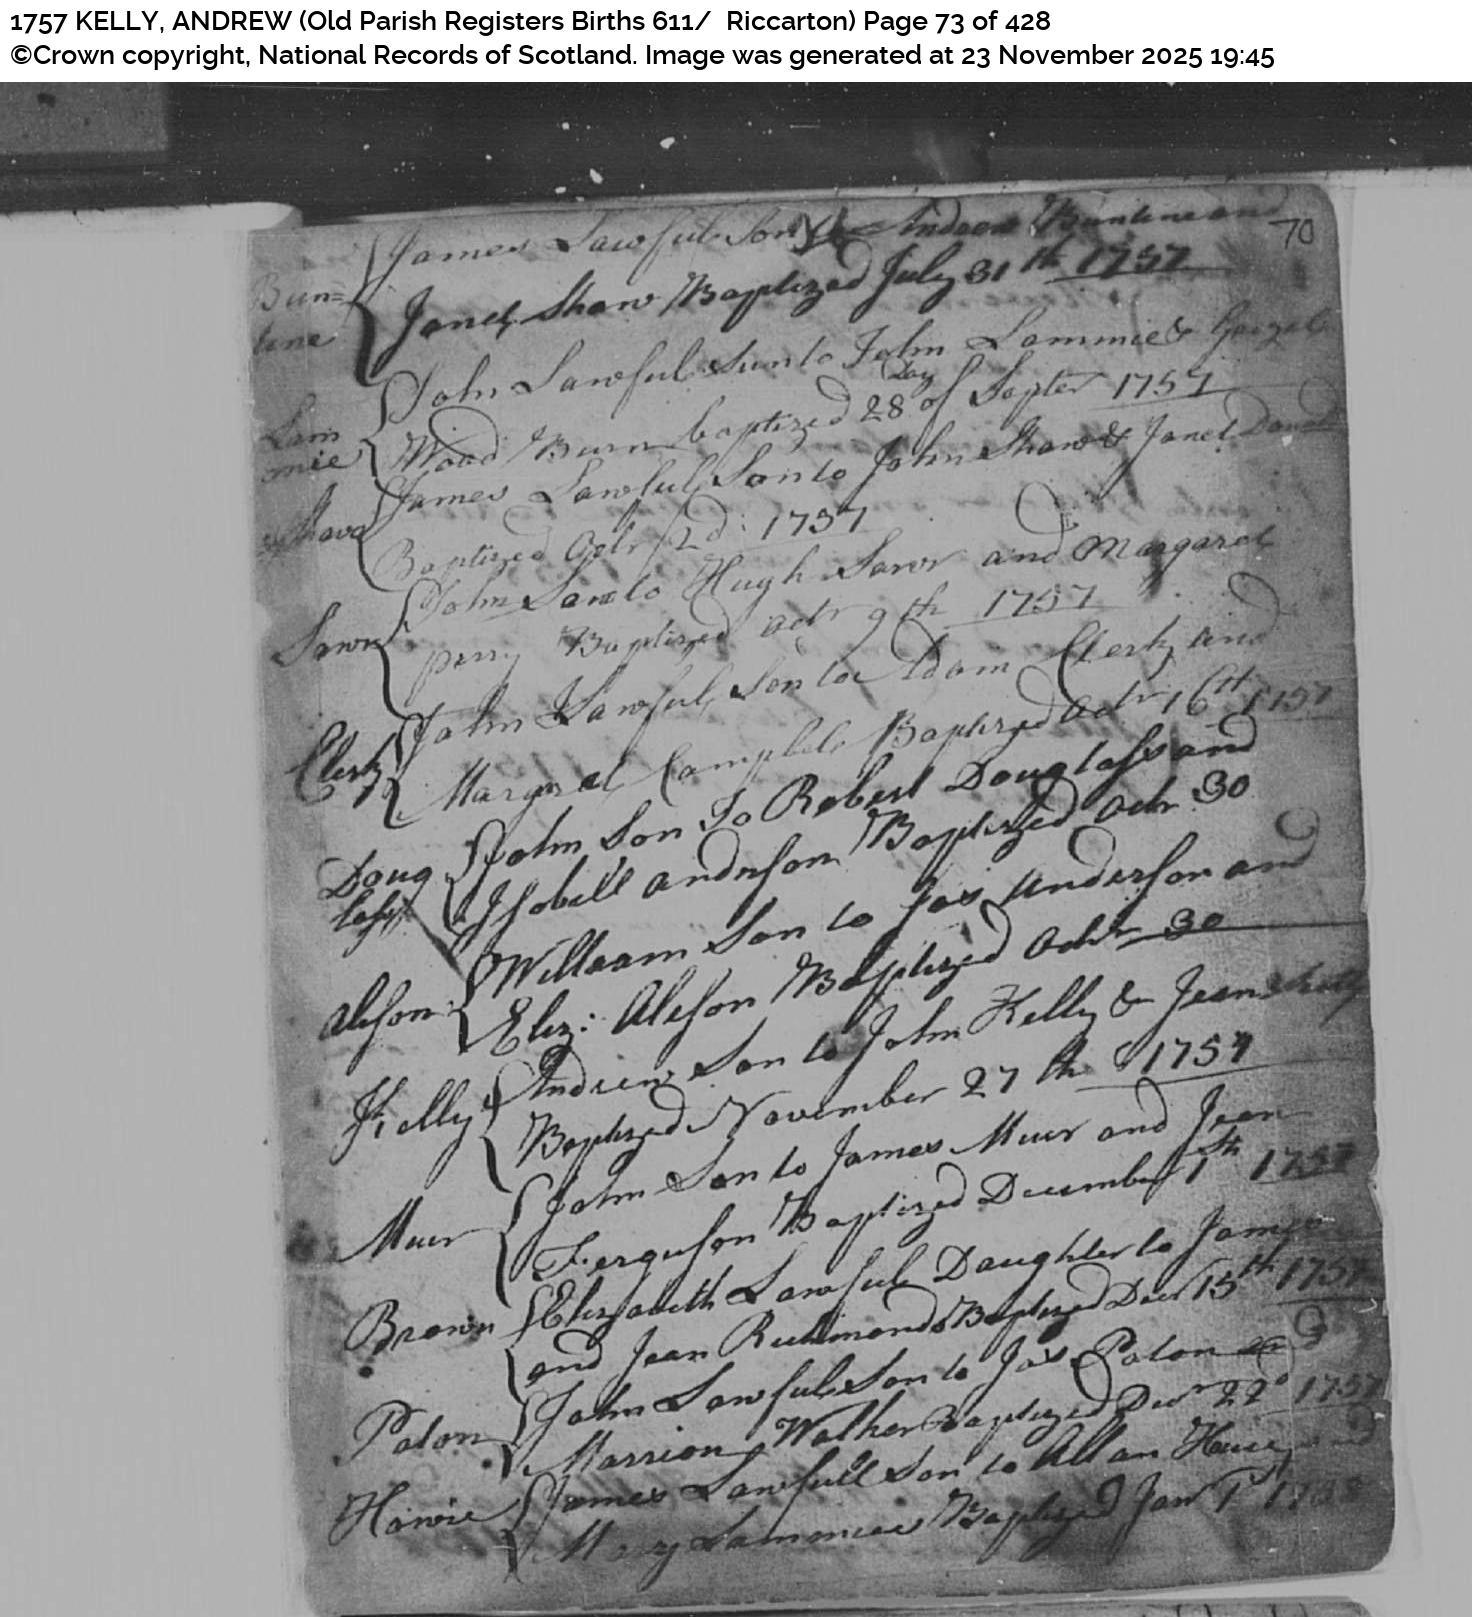 1757 KELLY, ANDREW (Old Parish Registers Births 611/ Riccarton) Page 73 of 428
©Crown copyright, National Records of Scotland. Image was generated at 23 November 2025 19:45
70
James Lawful Son to Andrew Buntine and
Bun=
tine
Janet Shaw Baptized July 31th 1757
John Lawful Sun to John Lammie & Grizel
Lam
mie
Wood Burn baptized 28 Day of Septer 1757
James Lawful Son to John Shaw & Janet
Shaw
Baptized Octr 2d: 1757
John Son to Hugh Sawr and Margaret
Sawr
perry Baptized Octr 9th 1757
John Lawful Son to Adam Clerk and
Clerk
Margret Campbele Baptized Octr 16th 1757
John Son To Robert Douglass and
Doug
lass
Isobell andrson Baptized Octr 30
William Son to Jas Anderson and
Aleson
Eliz: Aleson Baptized Octr 30
Andrew Son to John Kelly & Jean
Kelly
Baptized November 27th 1757
John Son to James Muir and Jean
Muir
Ferguson Baptized December 1st 1757
Elizabeth Lawful Daughter to James
Brown
and Jean Richmond Baptized Decr 15th 1757
John Lawful Son to Jas Paton and
Paton
Marrion Walker Baptized Decr 22d 1757
James Lawfull Son to Allan Howie and
Howie
Mary Lammie Baptized Janr 1st 1758